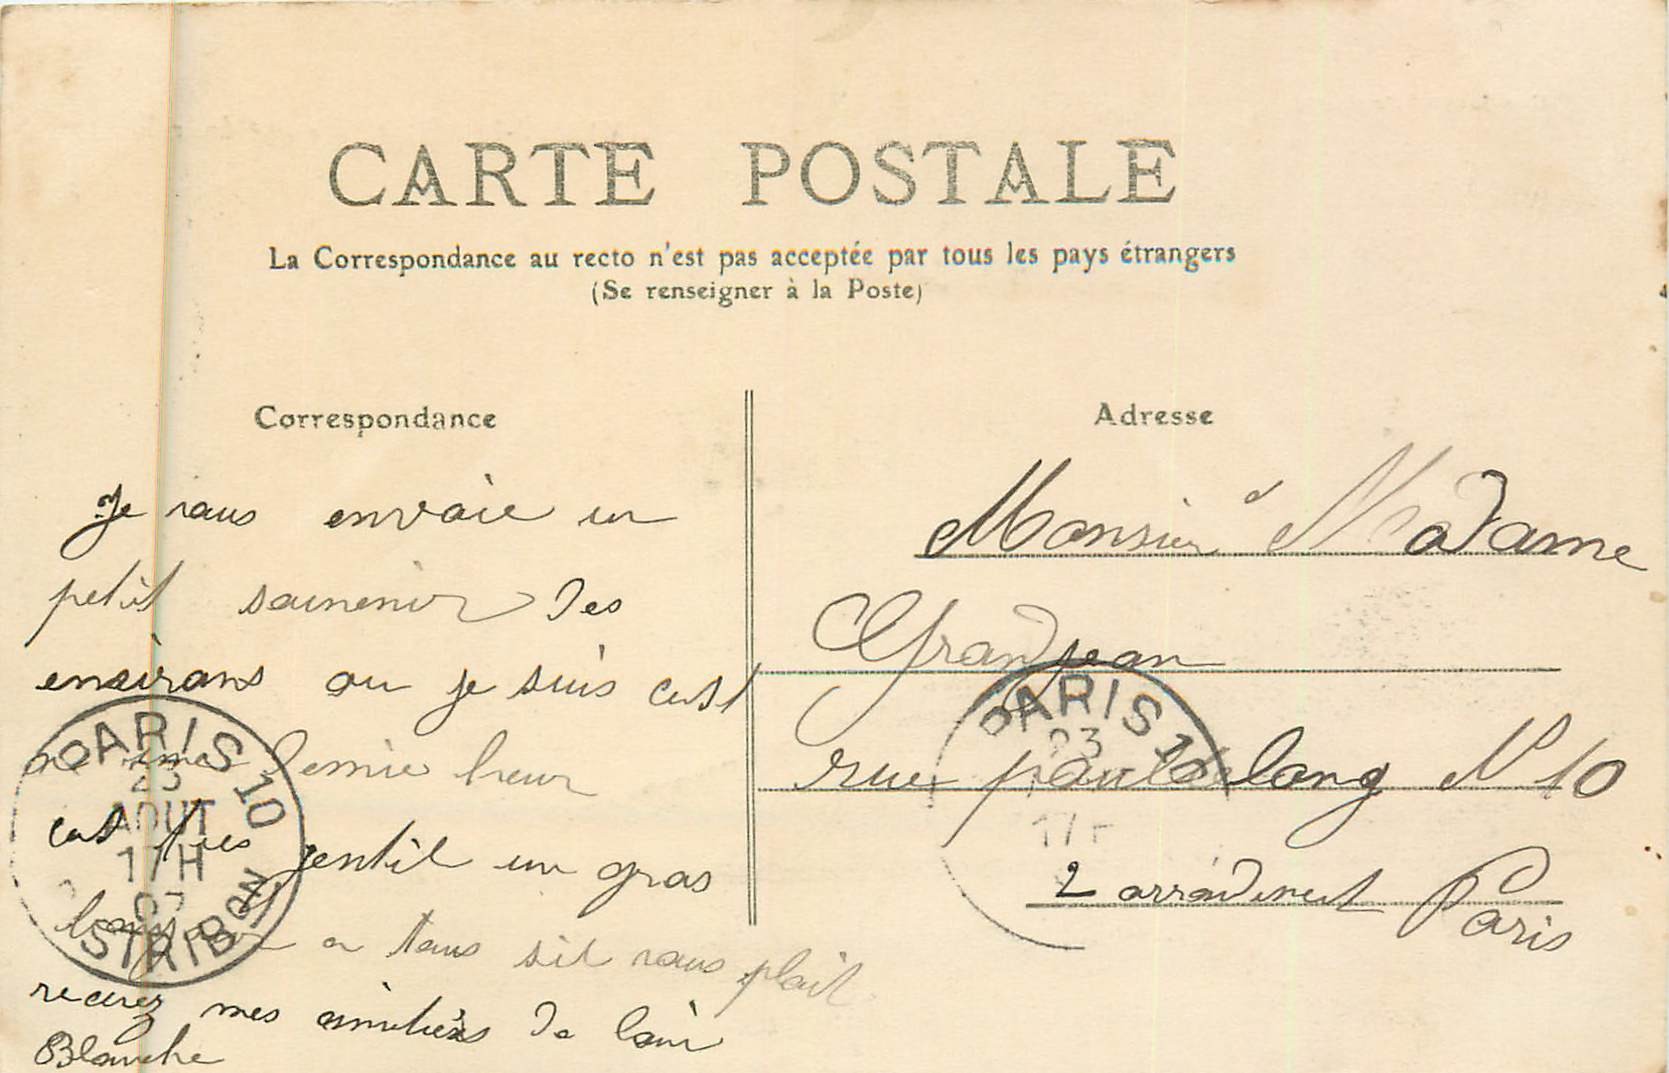 CARTE POSTALE
La Correspondance au recto n'est pas acceptée par tous les pays étrangers
(Se renseigner à la Poste)
Correspondance
Je vous envoie un
petit souvenir des
environs ou je suis cest
demie heur
cest tres jentil un gros
bonjour a tous sil vous plait
recevez mes amitiés de loin
Blanche
Adresse
Monsieur et Madame
Grandjean
rue paul lelong N 10
2 arrondiment Paris
PARIS 10
23
AOUT
17H
07
DISTRIBON
PARIS 10
23
17H